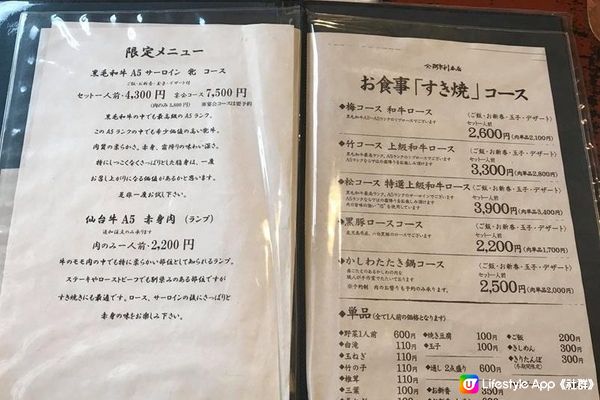 限定メニュー
黒毛和牛 A5 サーロイン 牝 コース
ご飯・お新香・玉子・デザート付
セット一人前・4,300円 宴会コース 7,500円
(肉のみ 3,800円) ※宴会コースは要予約
黒毛和牛の中でも最高級のA5ランク。
このA5ランクの中でも希少価値の高い牝牛。
肉質の柔らかさ、赤身、霜降りの味わい深さ。
特にしつこくなくさっぱりとした脂身は、一度
お召し上がりになる価値があるかと思います。
是非一度お試し下さい。
仙台牛 A5 赤身肉 (ランプ)
追加注文のみ承ります
肉のみ一人前・2,200円
牛のモモ肉の中でも特に柔らかい部位として知られるランプ。
ステーキやローストビーフでも馴染みのある部位ですが
すき焼きにも最適です。ロース、サーロインの後にさっぱりと
赤身の味をお楽しみ下さい。
お食事「すき焼」コース
◆梅コース 和牛ロース
(ご飯・お新香・玉子・デザート)
セット一人前
2,600円(肉単品2,100円)
◆竹コース 上級和牛ロース
(ご飯・お新香・玉子・デザート)
セット一人前
3,300円(肉単品2,800円)
◆松コース 特選上級和牛ロース
(ご飯・お新香・玉子・デザート)
セット一人前
3,900円(肉単品3,400円)
◆黒豚ロースコース
(ご飯・お新香・玉子・デザート)
セット一人前
2,200円(肉単品1,700円)
◆かしわたたき鍋コース
(ご飯・お新香・玉子・デザート)
セット一人前
2,500円(肉単品2,000円)
※予約制 肉のお替りも予約のみ承ります。
◆単品(全て1人前の価格となります)
◆野菜1人前 600円 ◆焼き豆腐 100円 ◆ご飯 200円
◆白滝 110円 ◆玉子 100円 ◆きしめん 300円
◆玉ねぎ 110円 ◆きりたんぽ 300円
◆竹の子 110円 ◆通し 2点盛り 600円
◆椎茸 110円
◆三葉 ◆お新香 350円
Lifestyle App《社群》